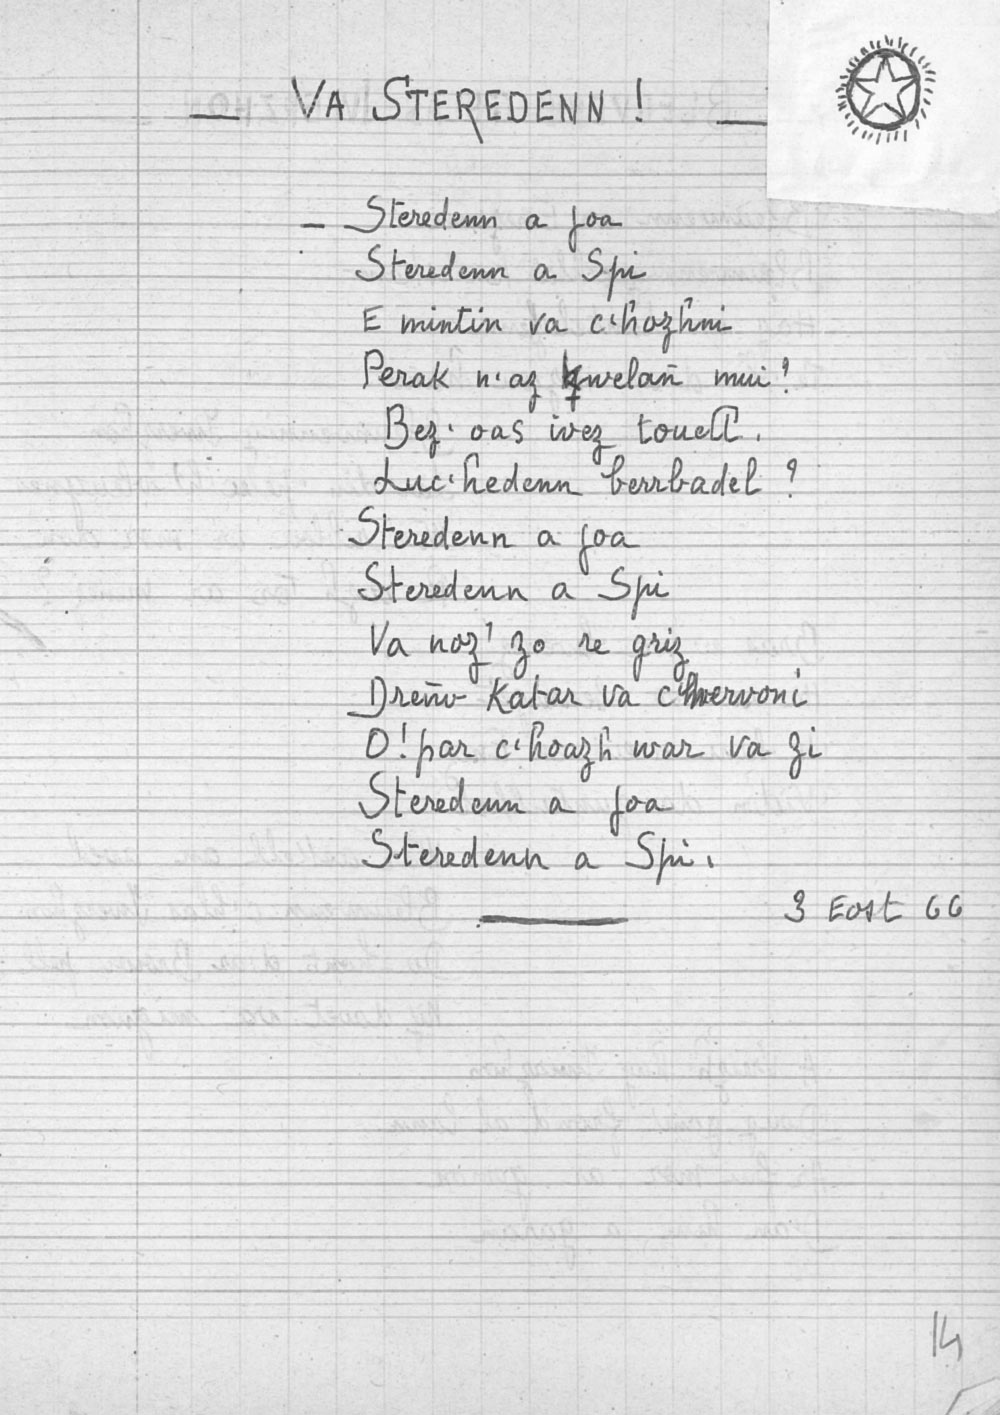 VA STEREDENN !
– Steredenn a joa
Steredenn a Spi
E mintin va c'hozhni
Perak n'az gwelañ mui ?
Bez' oas ivez touell.
Luc'hedenn berrbadel ?
Steredenn a joa
Steredenn a Spi
Va noz' zo re griz
Dreñv Katar va c'hwervoni
O! par c'hoazh war va zi
Steredenn a joa
Steredenn a Spi.
3 Eost 66
14